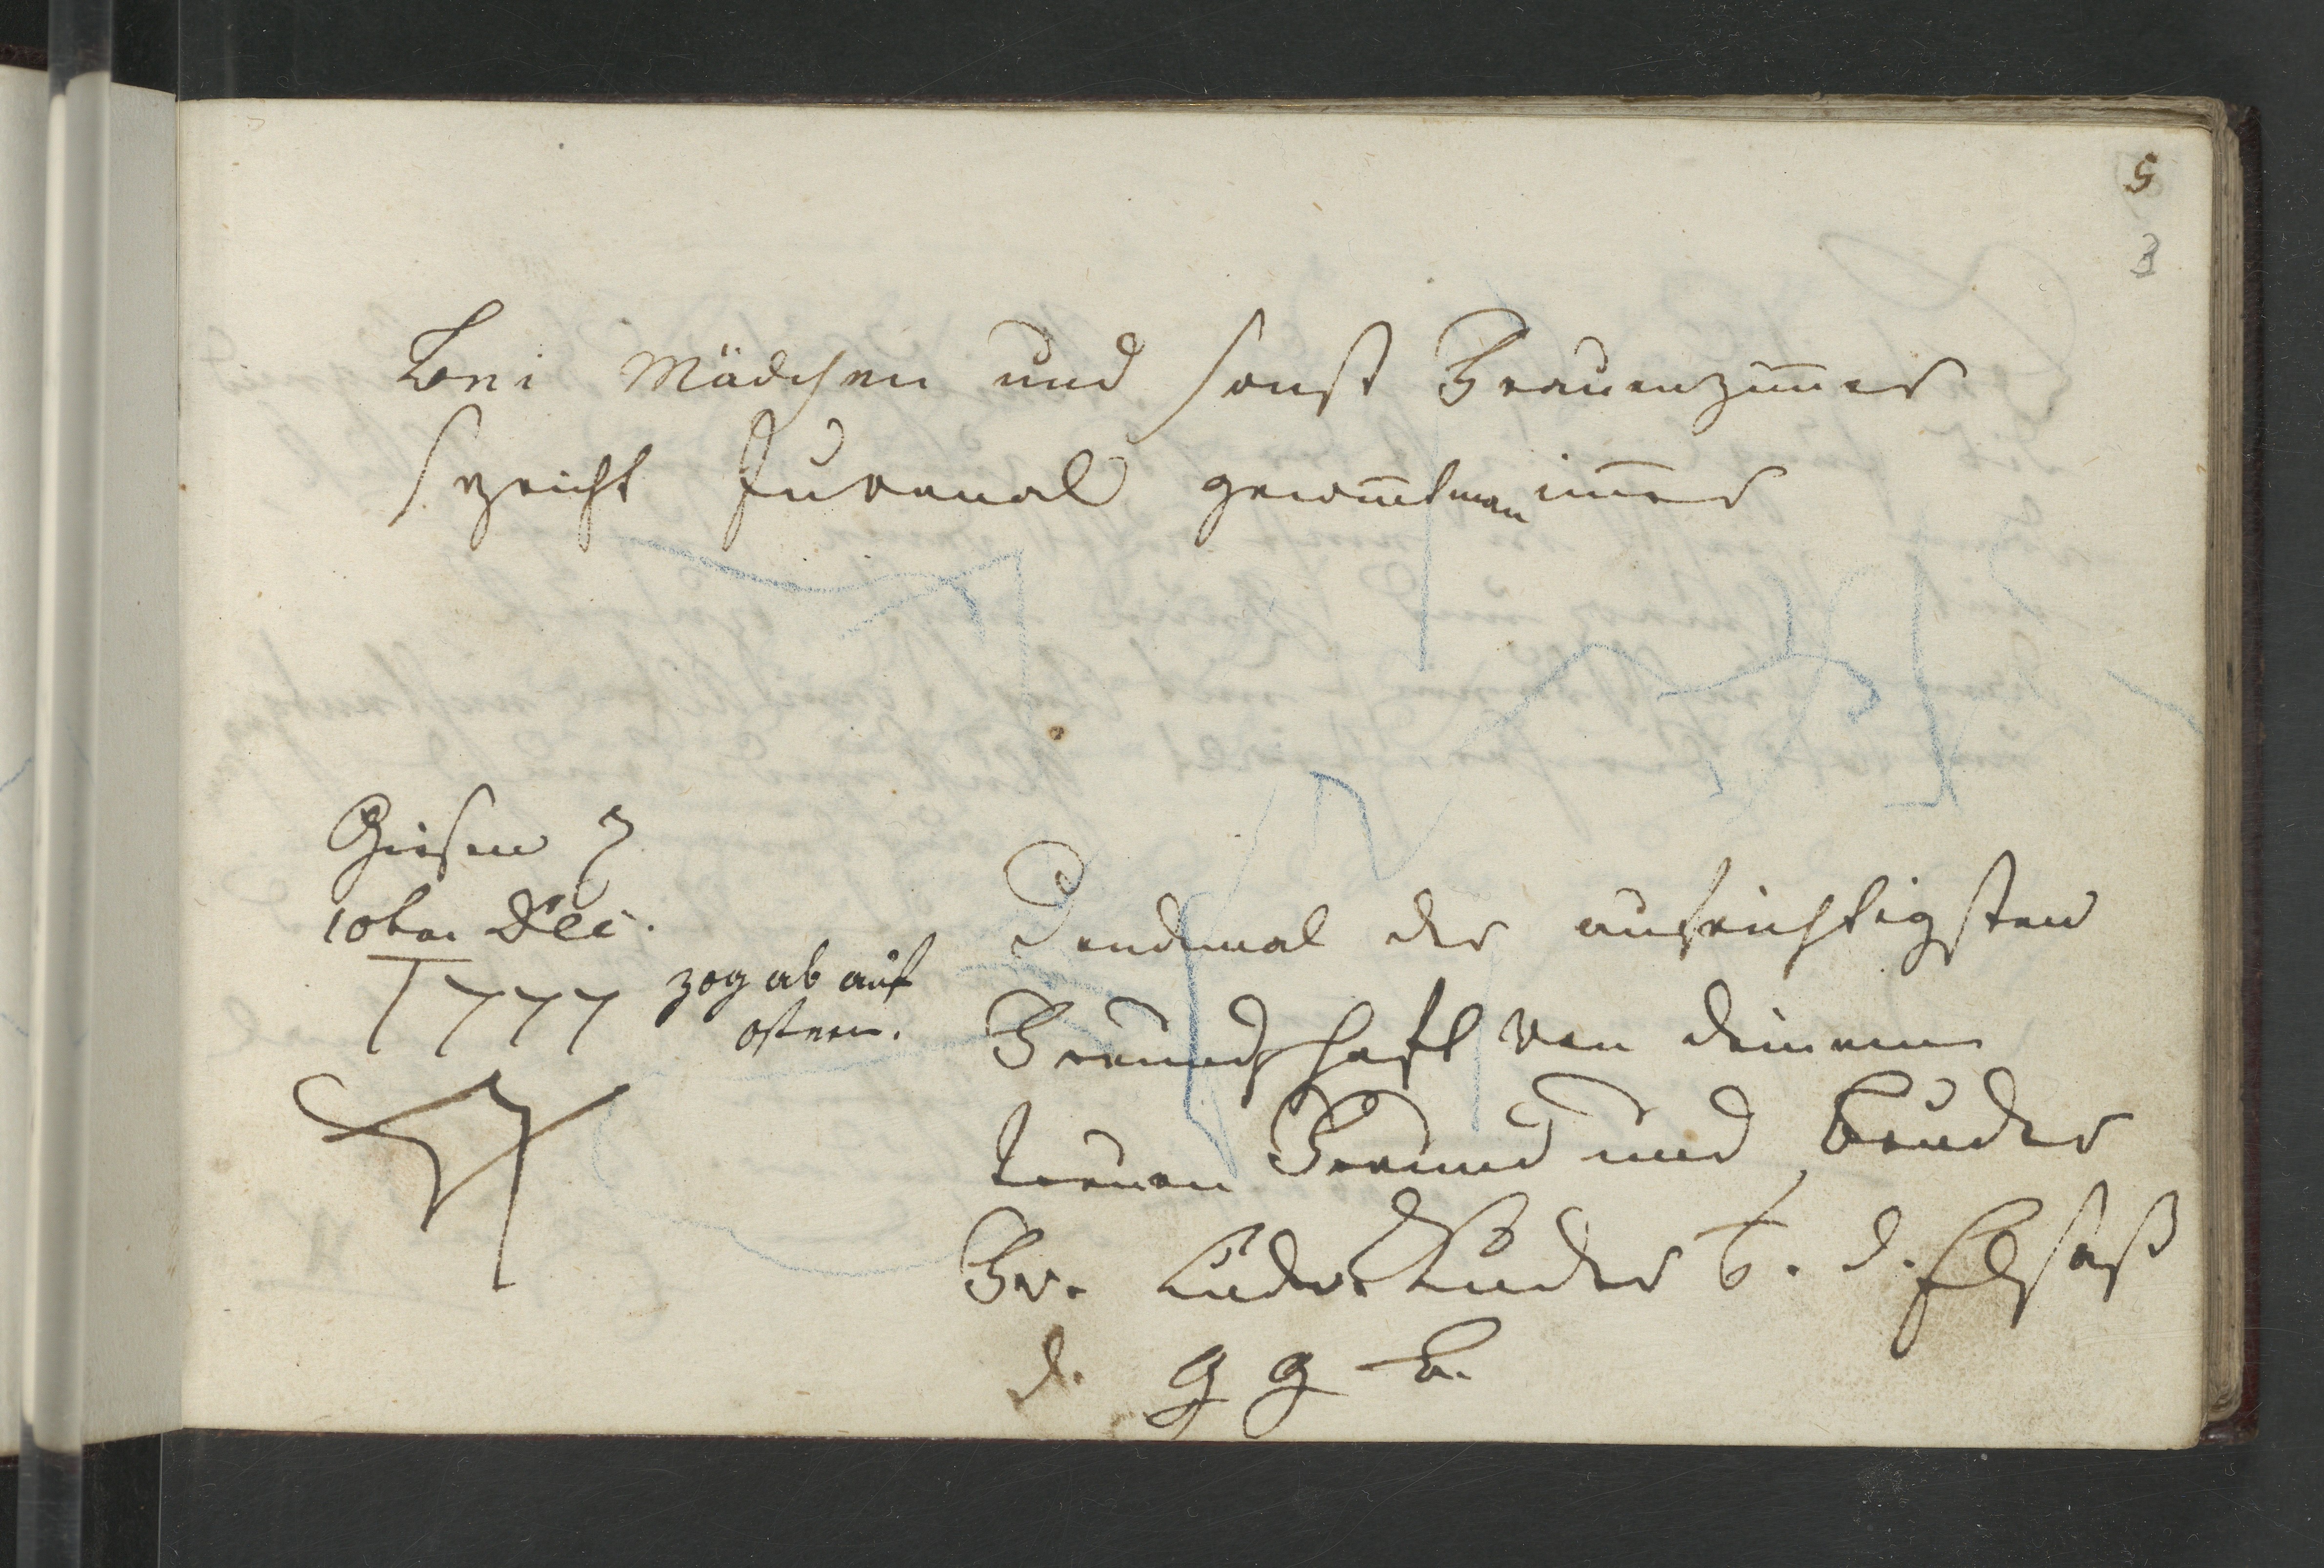 5
3
Bei Mädchen und sonst Frauenzim̅er
spricht Juvenal gewin̅t man im̅er
Giesen d
10ten Dec.
1777
zog ab auf
ostern.
Denckmal der aufrichtigsten
Freundschaft von deinem
treuen Freund und Bruder
Fr. b. d. Elsaß
d. G G B.